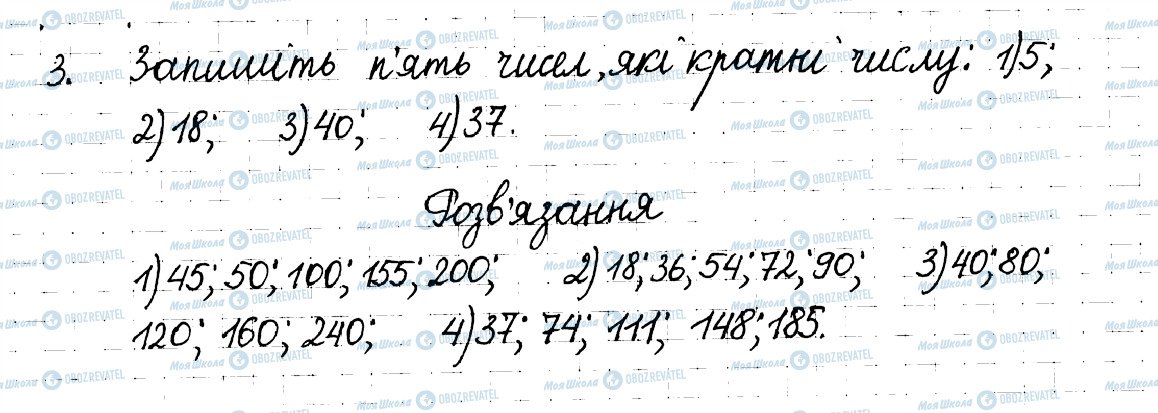 3. Запишіть п'ять чисел, які кратні числу: 1)5;
2)18; 3)40; 4)37.
Розв'язання
1)45; 50; 100; 155; 200; 2)18; 36; 54; 72; 90; 3)40; 80;
120; 160; 240; 4)37; 74; 111; 148; 185.